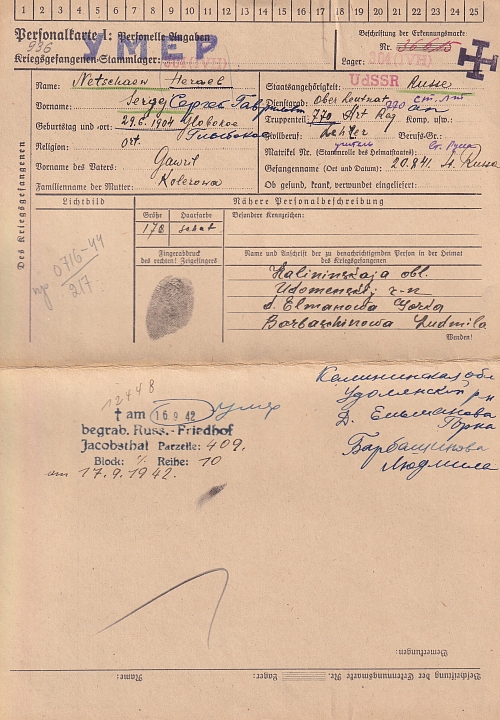 1 2 3 4 5 6 7 8 9 10 11 12 13 14 15 16 17 18 19 20 21 22 23 24 25
Personalkarte I: Personelle Angaben
УМЕР
Beschriftung der Erkennungsmarke
996
Nr.
Kriegsgefangenen-Stammlager:
Lager:
UdSSR
Des Kriegsgefangenen
Name: Netschaew
Staatsangehörigkeit: Russe
Vorname: Sergej Сергей
Dienstgrad: Oberleutnat ст. лт
Geburtstag und -ort: 29.6.1904
Truppenteil: 770 Art Reg Komp. usw.:
Religion: ort.
Zivilberuf: Lehrer Berufs-Gr.:
учитель
Matrikel Nr. (Stammrolle des Heimatstaates):
Vorname des Vaters: Gawril
Gefangennahme (Ort und Datum): 20.8.41 St. Russa
Familienname der Mutter: Kolerowa
Ob gesund, krank, verwundet eingeliefert:
Lichtbild
Nähere Personalbeschreibung
Größe Haarfarbe
Besondere Kennzeichen:
178
0716-44
217
Fingerabdruck
des rechten! Zeigefingers
Name und Anschrift der zu benachrichtigenden Person in der Heimat
des Kriegsgefangenen
Kalininskaja obl.
Udomenskj r-n
d. Elmanowa Gorka
Barbaschinowa Ludmila
Wenden!
12448
† am 16.9.42 умер
begrab. Russ.-Friedhof
Jacobsthal Parzelle: 409.
Block: Reihe: 10
am 17.9.1942.
Калининская обл
Удомлский р-н
Д. Ельманова
Горка
Барбашинова
Людмила
Bemerkungen:
Beschriftung der Erkennungsmarke Nr. Lager: Name: